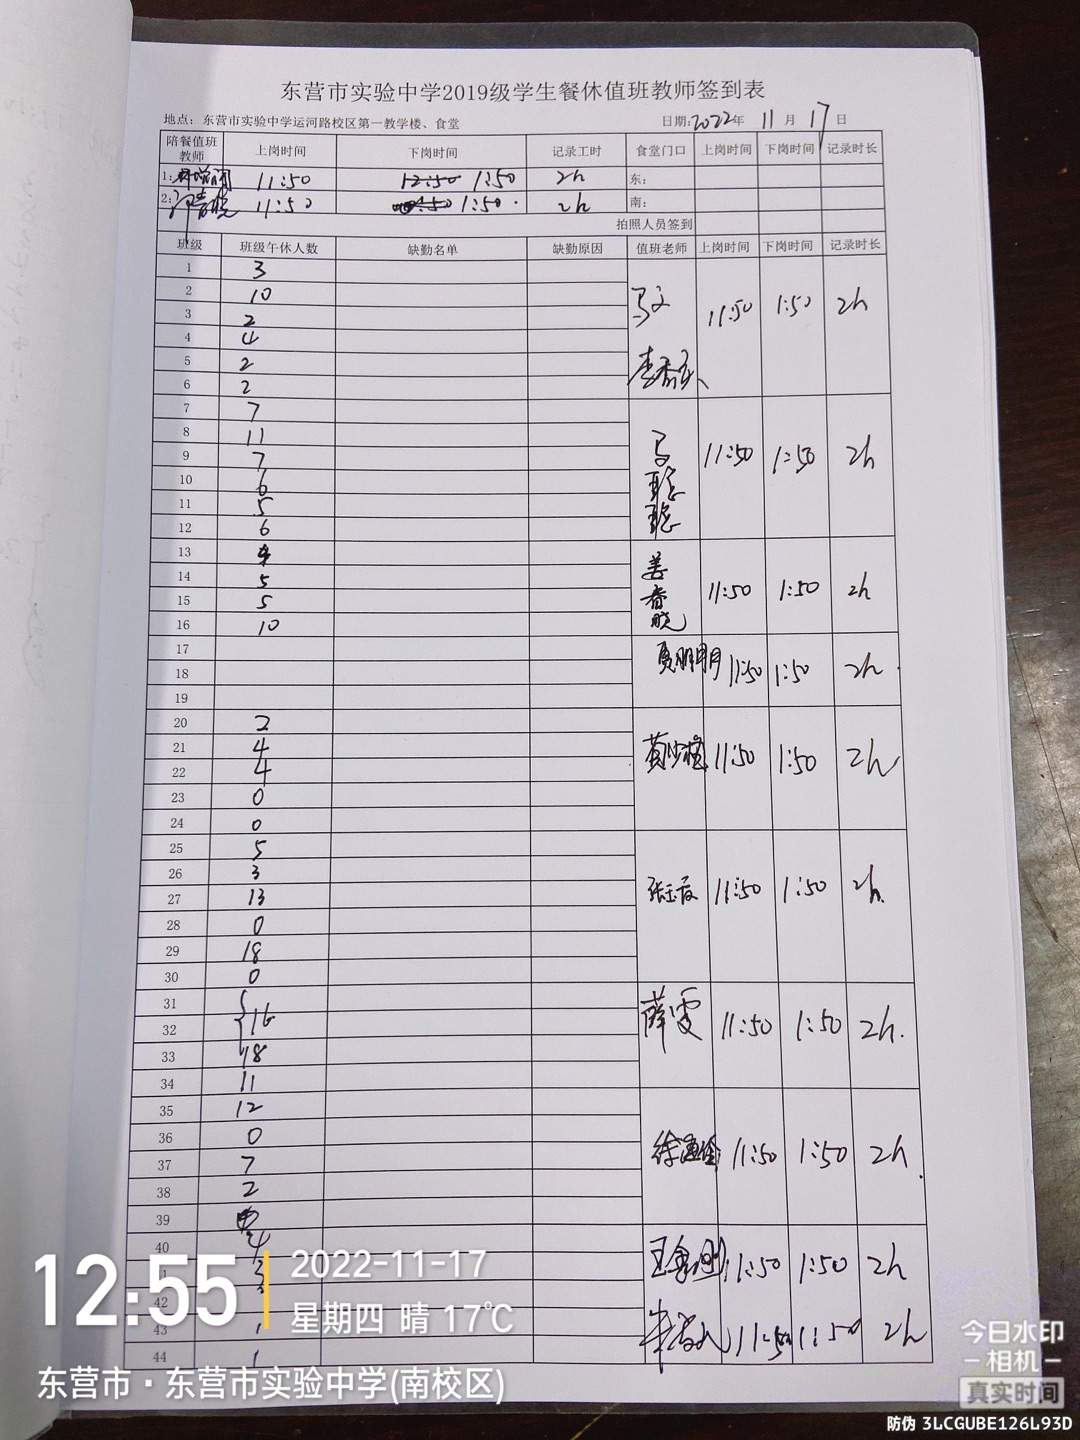 东营市实验中学2019级学生餐休值班教师签到表
地点：东营市实验中学运河路校区第一教学楼、食堂 日期：2022年 11月 17日
陪餐值班教师 上岗时间 下岗时间 记录工时 食堂门口 上岗时间 下岗时间 记录时长
1: 11:50 12:50 1:50 2h 东:
2: 11:50 1:50. 2h 南:
拍照人员签到
班级 班级午休人数 缺勤名单 缺勤原因 值班老师 上岗时间 下岗时间 记录时长
1 3
2 10 马文 11:50 1:50 2h
3 2
4 4
5 2 李
6 2
7 7
8 11
9 7 马聪聪 11:50 1:50 2h
10 6
11 5
12 6
13
14 5 姜春晓 11:50 1:50 2h
15 5
16 10
17
18 夏明明 11:50 1:50 2h.
19
20 2
21 4 黄 11:50 1:50 2h
22 4
23 0
24 0
25 5
26 3
27 13 张玉 11:50 1:50 2h.
28 0
29 18
30 0
31
32 16 薛雯 11:50 1:50 2h.
33 18
34 11
35 12
36 0
37 7 徐 11:50 1:50 2h.
38 2
39
40 4
3 王 11:50 1:50 2h
42
43 1 11:50 1:50 2h
44 1
12:55
2022-11-17
星期四 晴 17℃
东营市·东营市实验中学(南校区)
今日水印
-相机-
真实时间
防伪 3LCGUBE126L93D